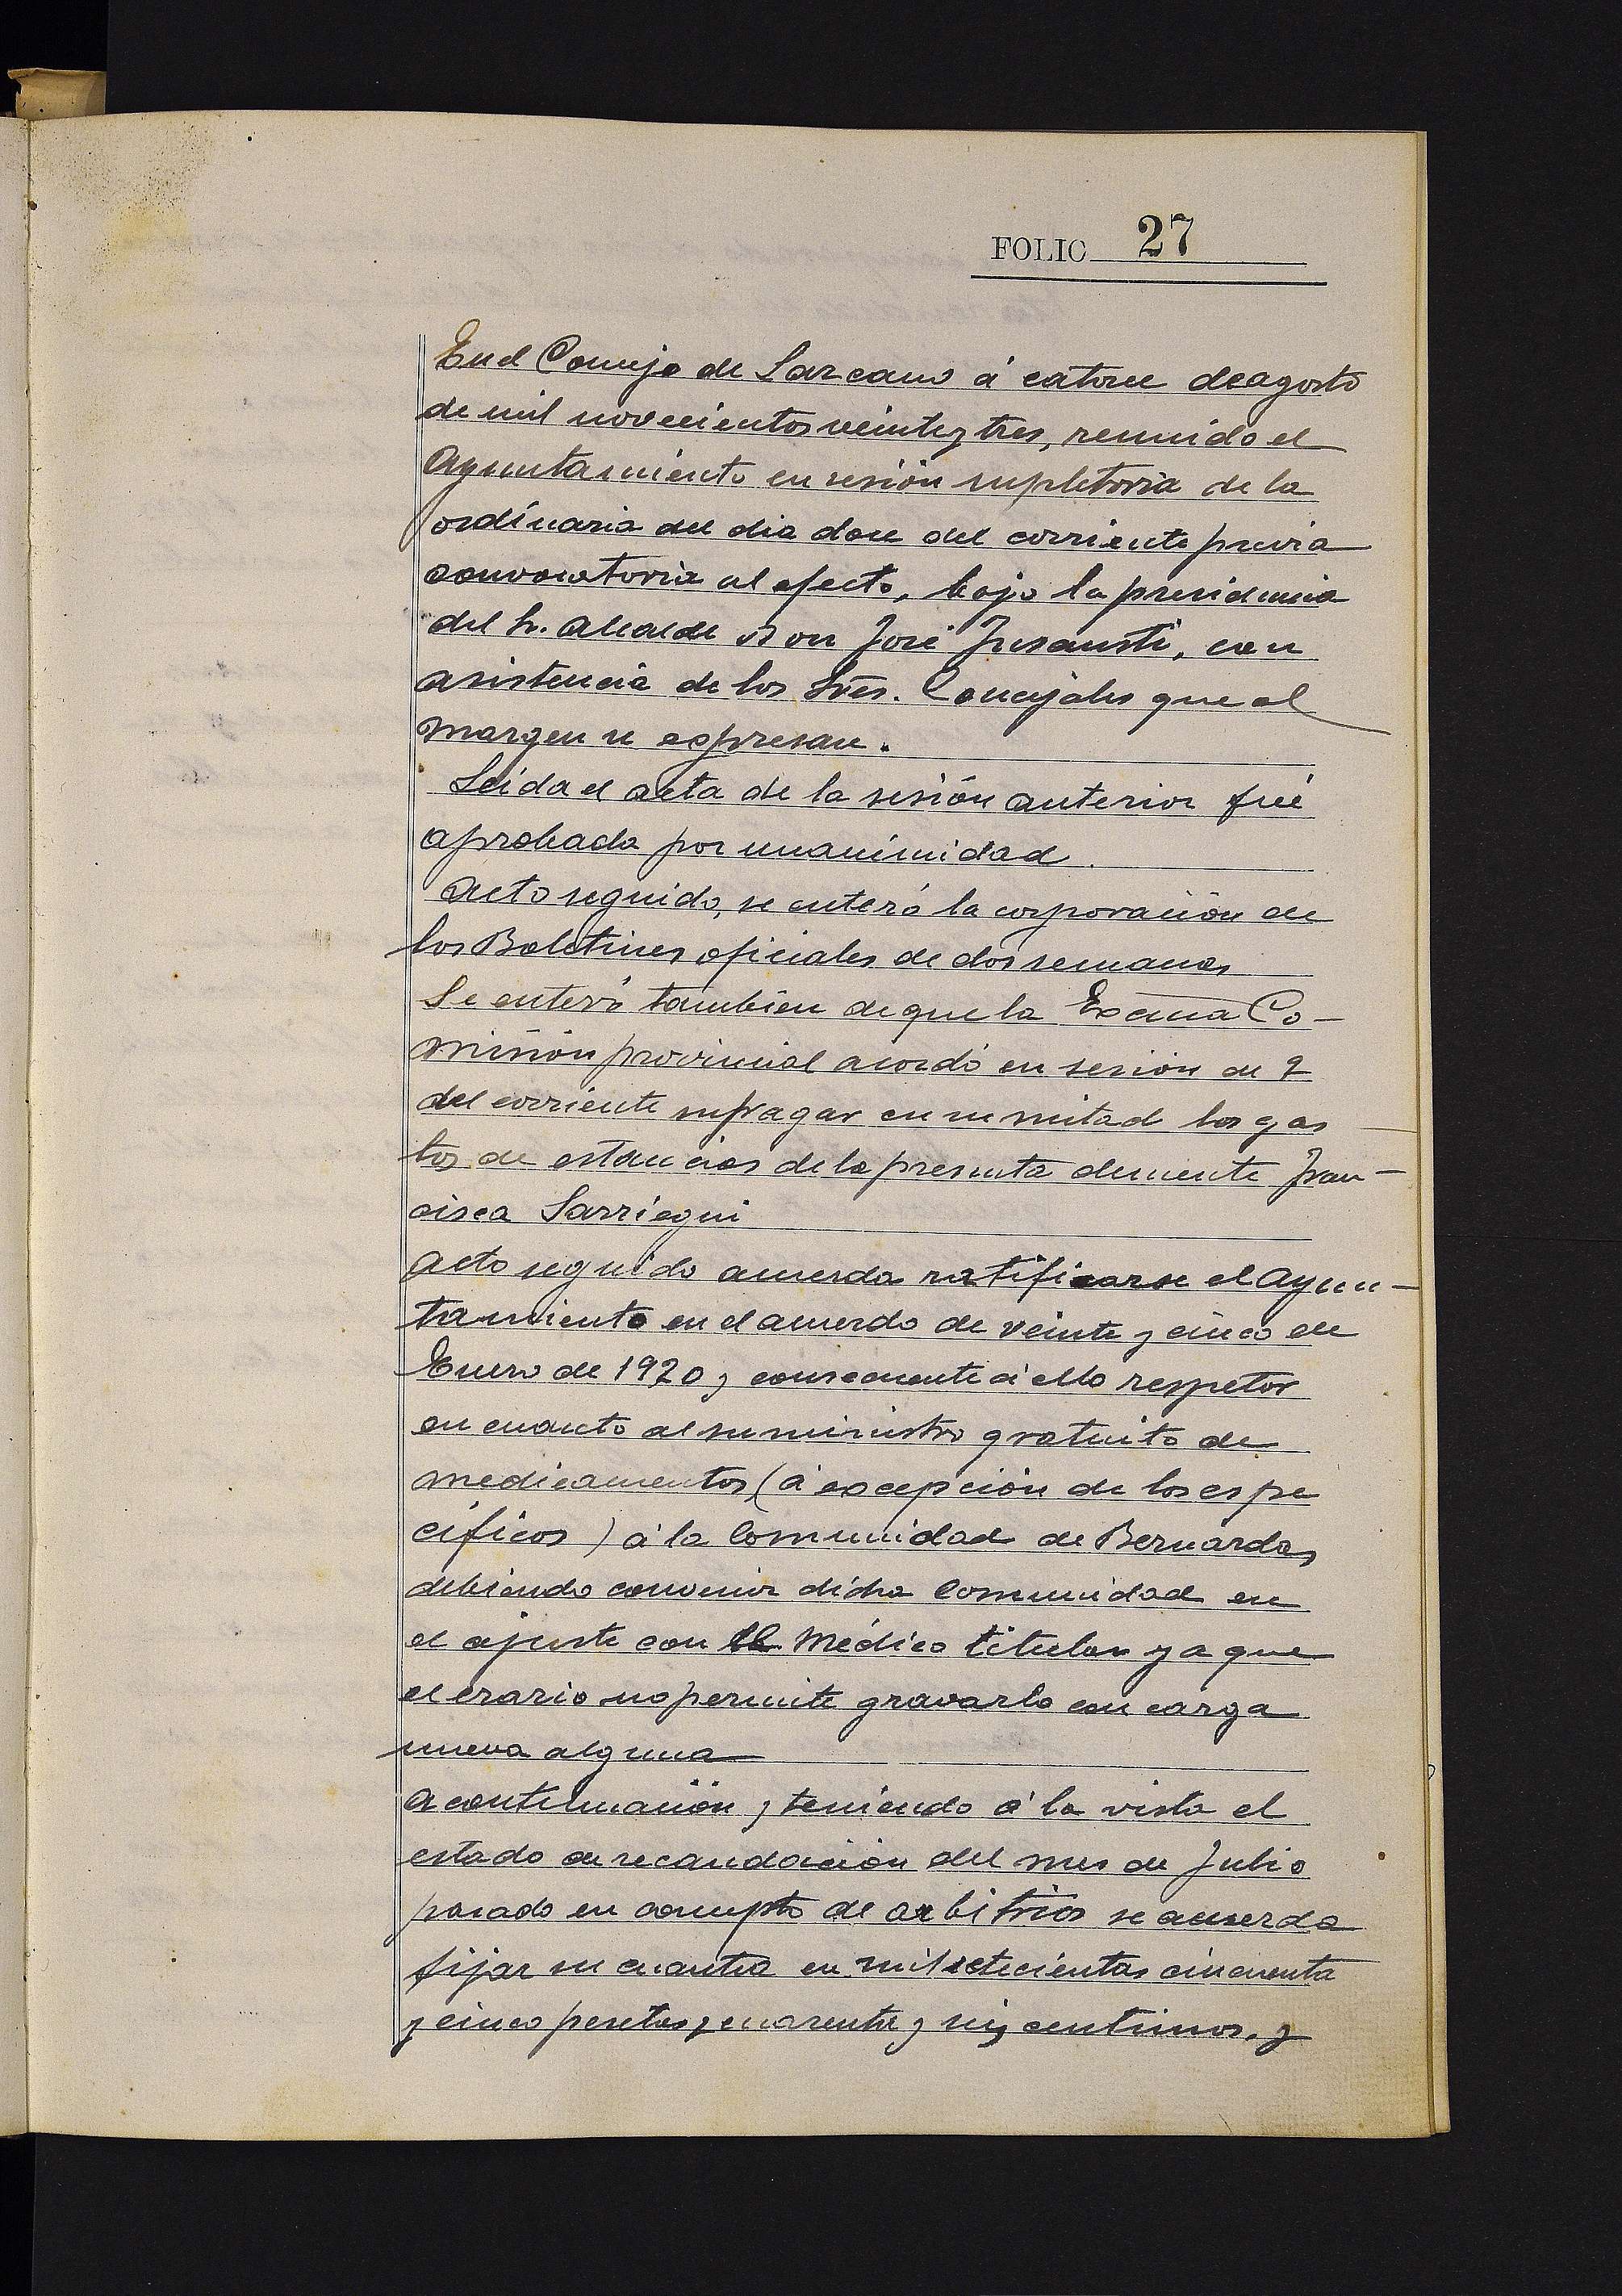 FOLIO 27
En el Concejo de Lazcano á catorce de agosto
de mil novecientos veinte y tres, reunido el
Ayuntamiento en sesión supletoria de la
ordinaria del dia doce del corriente previa
convocatoria al efecto, bajo la presidencia
del Sr. Alcalde Don José Insausti, con
asistencia de los Sres. Concejales que al
margen se expresan.
Leida el acta de la sesión anterior fué
aprobada por unanimidad.
Acto seguido, se enteró la corporación de
los Boletines oficiales de dos semanas
Se enteró tambien de que la Excma Co-
misión provincial acordó en sesión de
del corriente sufragar en su mitad los gas
tos de estancias de la presunta demente Fran-
cisca Sarriegui
Acto seguido acuerda ratificarse el Ayun-
tamiento en el acuerdo de veinte y cinco de
Enero de 1920 y consecuente á ello respetar
en cuanto al suministro gratuito de
medicamentos (á excepción de los espe
cíficos) á la Comunidad de Bernardas
debiendo convenir dicha Comunidad en
el ajuste con el Médico titular ya que
el erario no permite gravarlo con carga
nueva alguna
A continuación y teniendo á la vista el
estado de recaudación del mes de Julio
pasado en concepto de arbitrios se acuerda
fijar su cuantia en mil setecientas cincuenta
y cinco pesetas y cuarenta y seis centimos. y